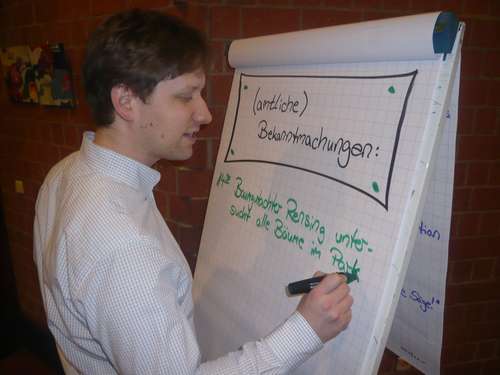 (amtliche)
Bekanntmachungen:
Baumwächter Rensing unter-
sucht alle Bäume im Park